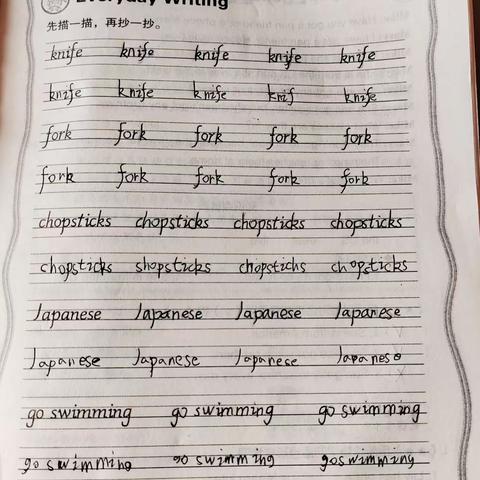 Everyday Writing
先描一描，再抄一抄。
knife knife knife knife knife
knife knife knife knif knife
fork fork fork fork fork
fork fork fork fork fork
chopsticks chopsticks chopsticks chopsticks
chopsticks shopsticks chopstichs chopsticks
Japanese Japanese Japanese Japanese
Japanese Japanese Japanese Japanese
go swimming go swimming go swimming
go swimming go swimming goswimming